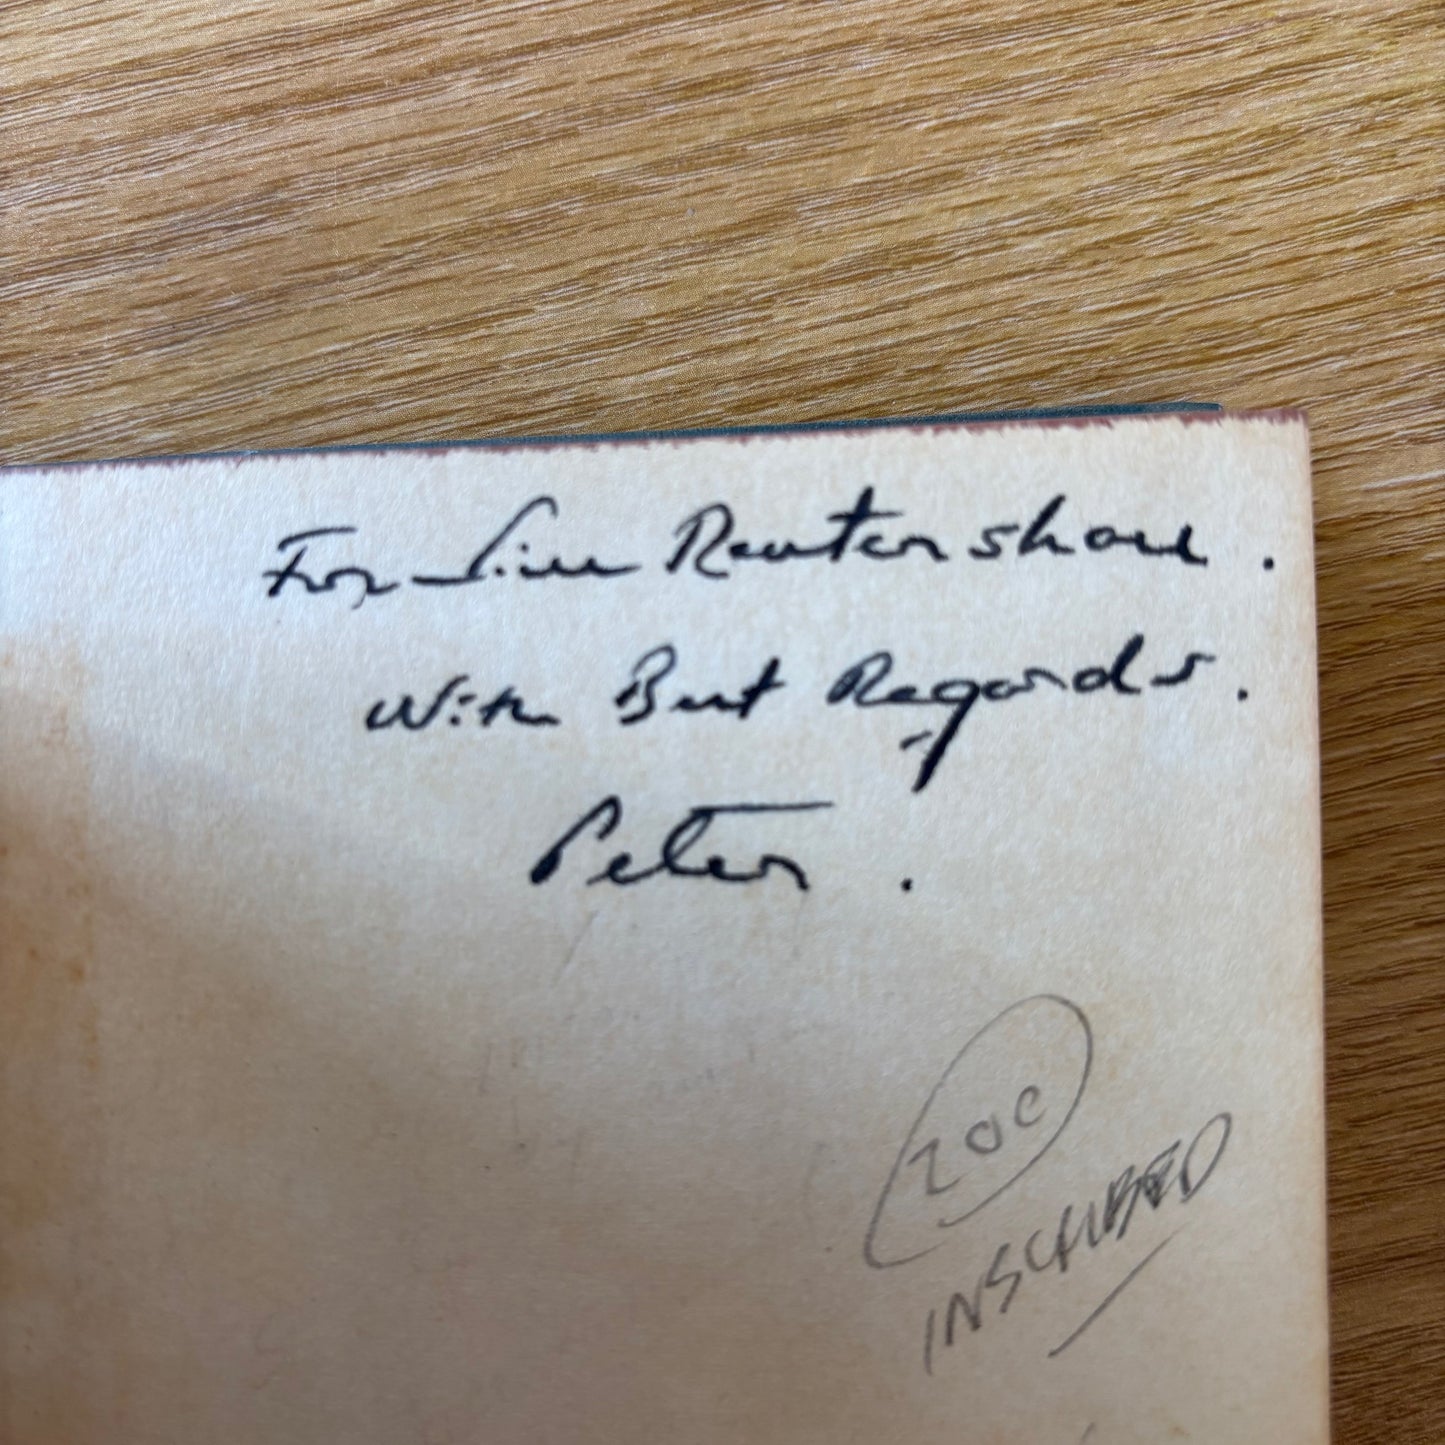 For Rautenshaul.
With Best Regards.
Peter.
200
INSCRIBED